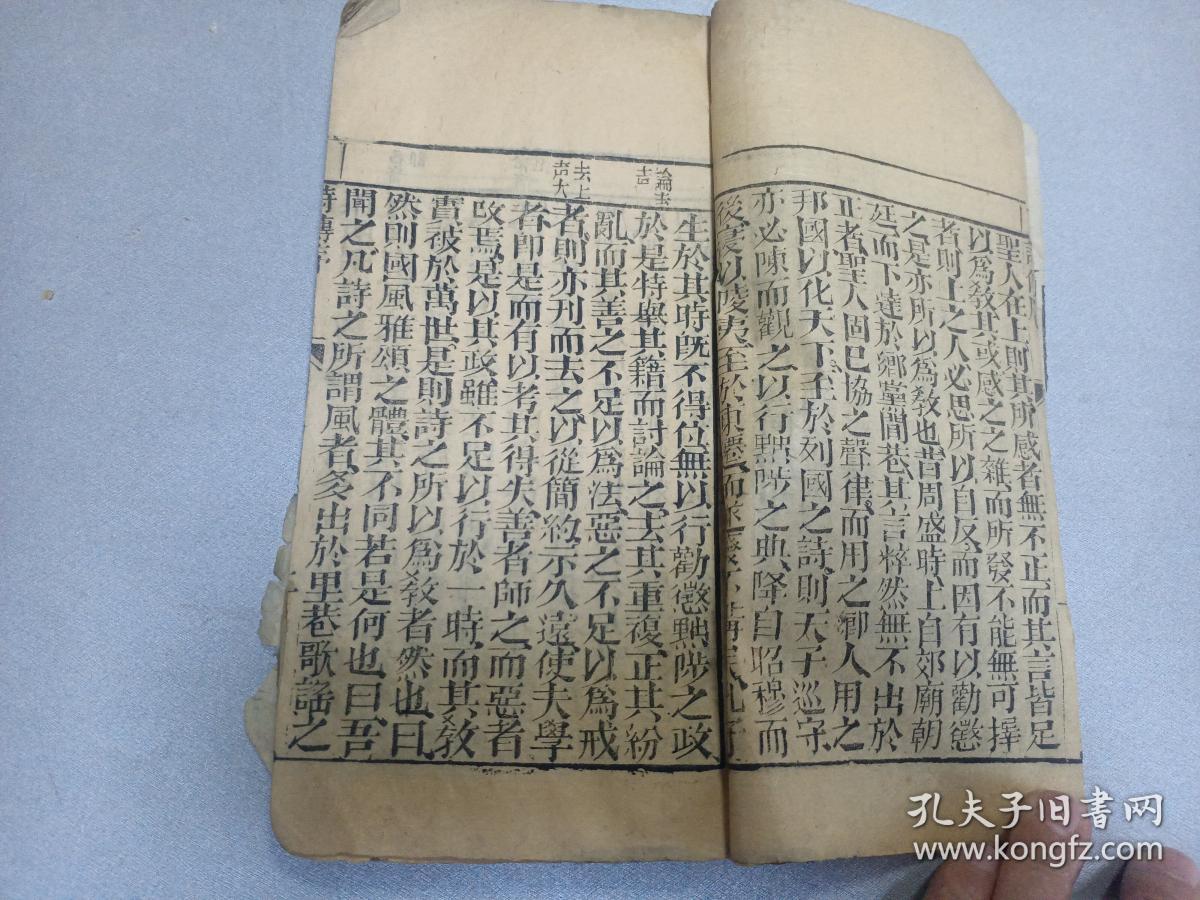 聖人在上則其所感者無不正而其言皆足
以爲教其或感之之雜而所發不能無可擇
者則上之人必思所以自反而因有以勸懲
之是亦所以爲教也昔周盛時上自郊廟朝
廷而下達於鄉黨閭巷其言粹然無不出於
正者聖人固已協之聲律而用之鄉人用之
邦國以化天下至於列國之詩則天子巡守
亦必陳而觀之以行黜陟之典降自昭穆而
後寖以陵夷至於東遷而遂廢不講矣孔子
生於其時旣不得位無以行勸懲黜陟之政
於是特舉其籍而討論之去其重複正其紛
亂而其善之不足以爲法惡之不足以爲戒
者則亦刊而去之以從簡約示久遠使夫學
者即是而有以考其得失善者師之而惡者
改焉是以其政雖不足以行於一時而其教
實被於萬世是則詩之所以爲教者然也曰
然則國風雅頌之體其不同若是何也曰吾
聞之凡詩之所謂風者多出於里巷歌謠之
論去
去上
詩傳序
二
孔夫子旧书网
www.kongfz.com